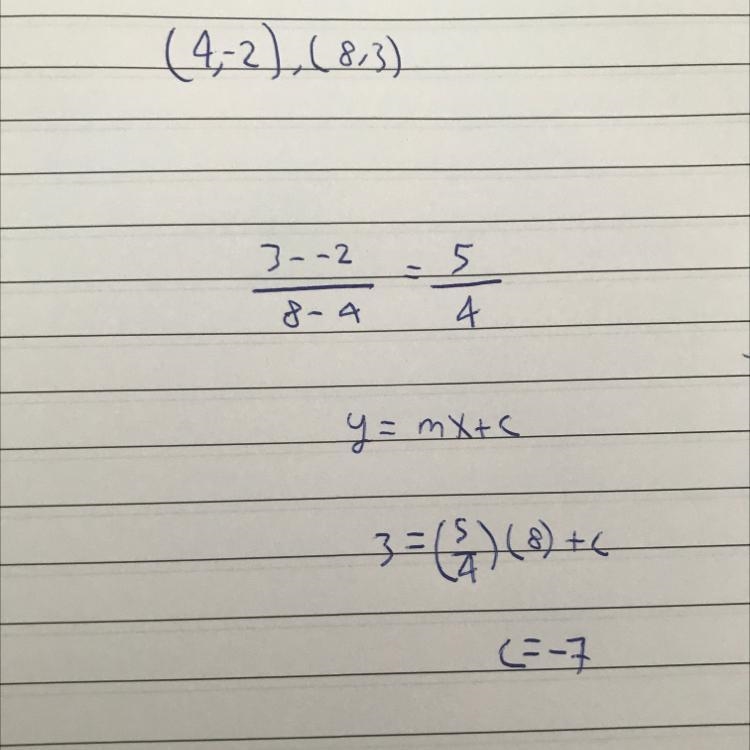 (4,-2),(8,3)
3--2 / 8-4 = 5/4
y = mx+c
3 = (5/4)(8)+c
c=-7